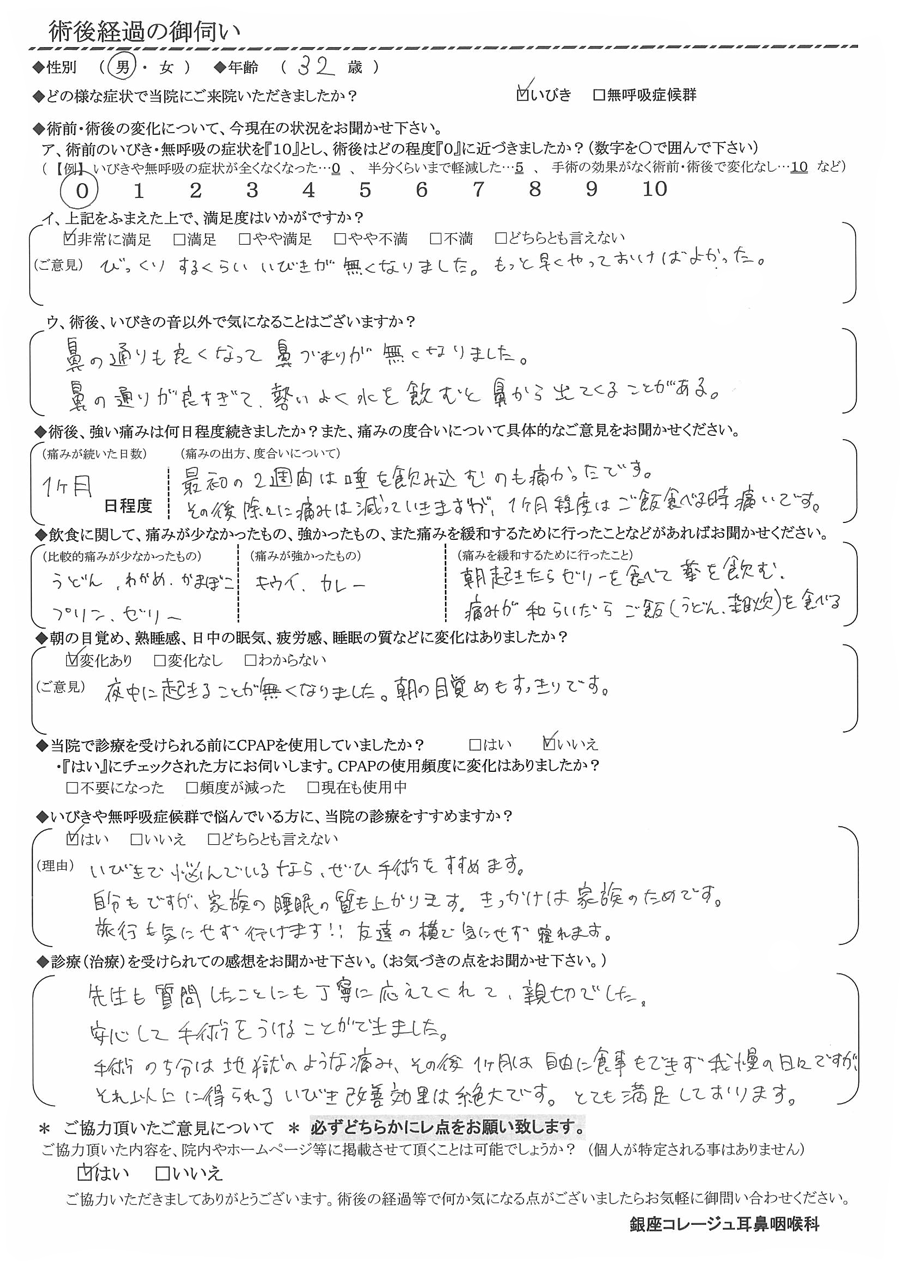 術後経過の御伺い
◆性別 （ 男 ・ 女 ） ◆年齢 （ 32 歳 ）
◆どの様な症状で当院にご来院いただきましたか？ ☑いびき □無呼吸症候群
◆術前・術後の変化について、今現在の状況をお聞かせ下さい。
ア、術前のいびき・無呼吸の症状を『10』とし、術後はどの程度『0』に近づきましたか？（数字を○で囲んで下さい）
（【例】いびきや無呼吸の症状が全くなくなった…0 、 半分くらいまで軽減した…5 、 手術の効果がなく術前・術後で変化なし…10 など）
0 1 2 3 4 5 6 7 8 9 10
イ、上記をふまえた上で、満足度はいかがですか？
☑非常に満足 □満足 □やや満足 □やや不満 □不満 □どちらとも言えない
（ご意見） びっくりするくらいいびきが無くなりました。もっと早くやっておけばよかった。
ウ、術後、いびきの音以外で気になることはございますか？
鼻の通りも良くなって鼻づまりが無くなりました。
鼻の通りが良すぎて、勢いよく水を飲むと鼻から出てくることがある。
◆術後、強い痛みは何日程度続きましたか？また、痛みの度合いについて具体的なご意見をお聞かせください。
（痛みが続いた日数） （痛みの出方、度合いについて）
1ヶ月 日程度 最初の2週間は唾を飲み込むのも痛かったです。
その後除々に痛みは減っていきますが、1ヶ月程度はご飯食べる時痛いです。
◆飲食に関して、痛みが少なかったもの、強かったもの、また痛みを緩和するために行ったことなどがあればお聞かせください。
（比較的痛みが少なかったもの） （痛みが強かったもの） （痛みを緩和するために行ったこと）
うどん、わかめ、かまぼこ キウイ、カレー 朝起きたらゼリーを食べて薬を飲む、
プリン、ゼリー 痛みが和らいだらご飯（うどん、雑炊）を食べる
◆朝の目覚め、熟睡感、日中の眠気、疲労感、睡眠の質などに変化はありましたか？
☑変化あり □変化なし □わからない
（ご意見） 夜中に起きることが無くなりました。朝の目覚めもすっきりです。
◆当院で診療を受けられる前にCPAPを使用していましたか？ □はい ☑いいえ
・『はい』にチェックされた方にお伺いします。CPAPの使用頻度に変化はありましたか？
□不要になった □頻度が減った □現在も使用中
◆いびきや無呼吸症候群で悩んでいる方に、当院の診療をすすめますか？
☑はい □いいえ □どちらとも言えない
（理由） いびきで悩んでいるなら、ぜひ手術をすすめます。
自分もですが、家族の睡眠の質も上がります。きっかけは家族のためです。
旅行も気にせず行けます!! 友達の横で気にせず寝れます。
◆診療（治療）を受けられての感想をお聞かせ下さい。（お気づきの点をお聞かせ下さい。）
先生も質問したことにも丁寧に応えてくれて、親切でした。
安心して手術をうけることができました。
手術の5分は地獄のような痛み、その後1ヶ月は自由に食事もできず我慢の日々ですが、
それ以上に得られるいびき改善効果は絶大です。とても満足しております。
＊ ご協力頂いたご意見について ＊ 必ずどちらかにレ点をお願い致します。
ご協力頂いた内容を、院内やホームページ等に掲載させて頂くことは可能でしょうか？（個人が特定される事はありません）
☑はい □いいえ
ご協力いただきましてありがとうございます。術後の経過等で何か気になる点がございましたらお気軽に御問い合わせください。
銀座コレージュ耳鼻咽喉科